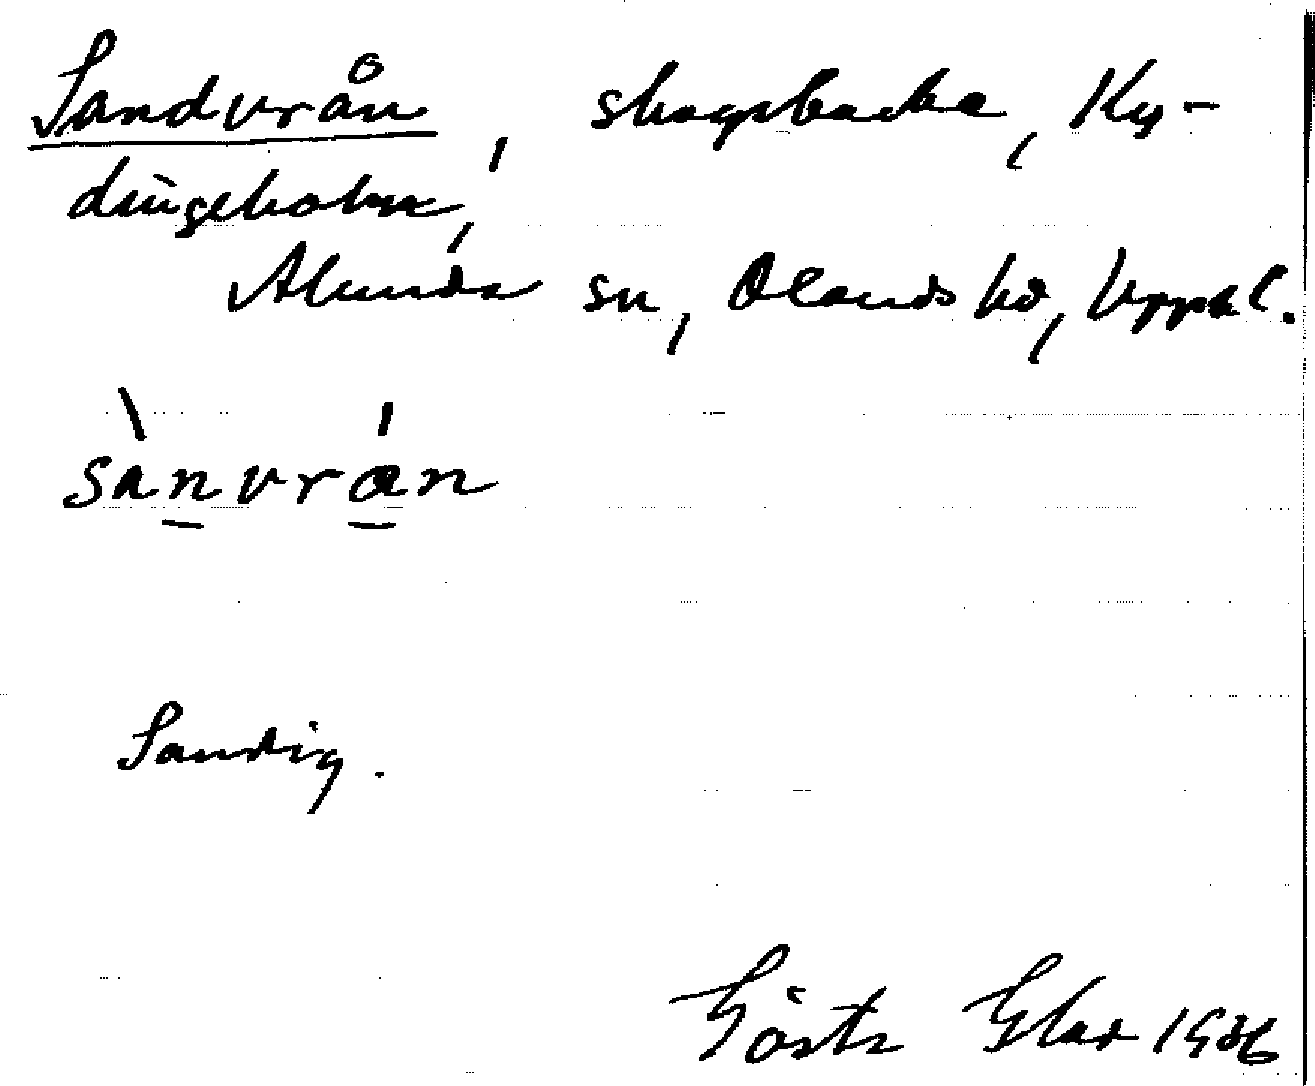 Sandvrån, skogsbacke, Ky-
dingeholm,
Alunda sn, Olands hd, Uppsl.
sànvrán
Sandig.
Gösta Glad 1936